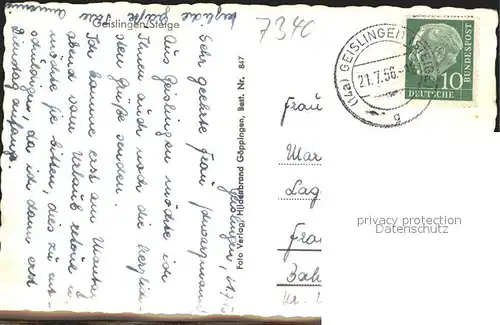 Geislingen/Steige
7340
(14a) GEISLINGEN (STEIGE)
21.7.56
g
10
DEUTSCHE
BUNDESPOST
Foto Verlag Hilderbrand Göppingen, Best. Nr. 847
Geislingen, 21.7.56
Sehr geehrte Frau
Aus Geislingen möchte ich
Ihnen auch noch die herzlich-
sten Grüße senden.
Ich komme erst am Montag
abend vom Urlaub retour u.
möchte Sie bitten, dies zu ent-
schuldigen, da ich dann erst
Dienstag anfange.
herzliche Grüße
Frau
Mar
Lag
Fra
Bah
privacy protection
Datenschutz